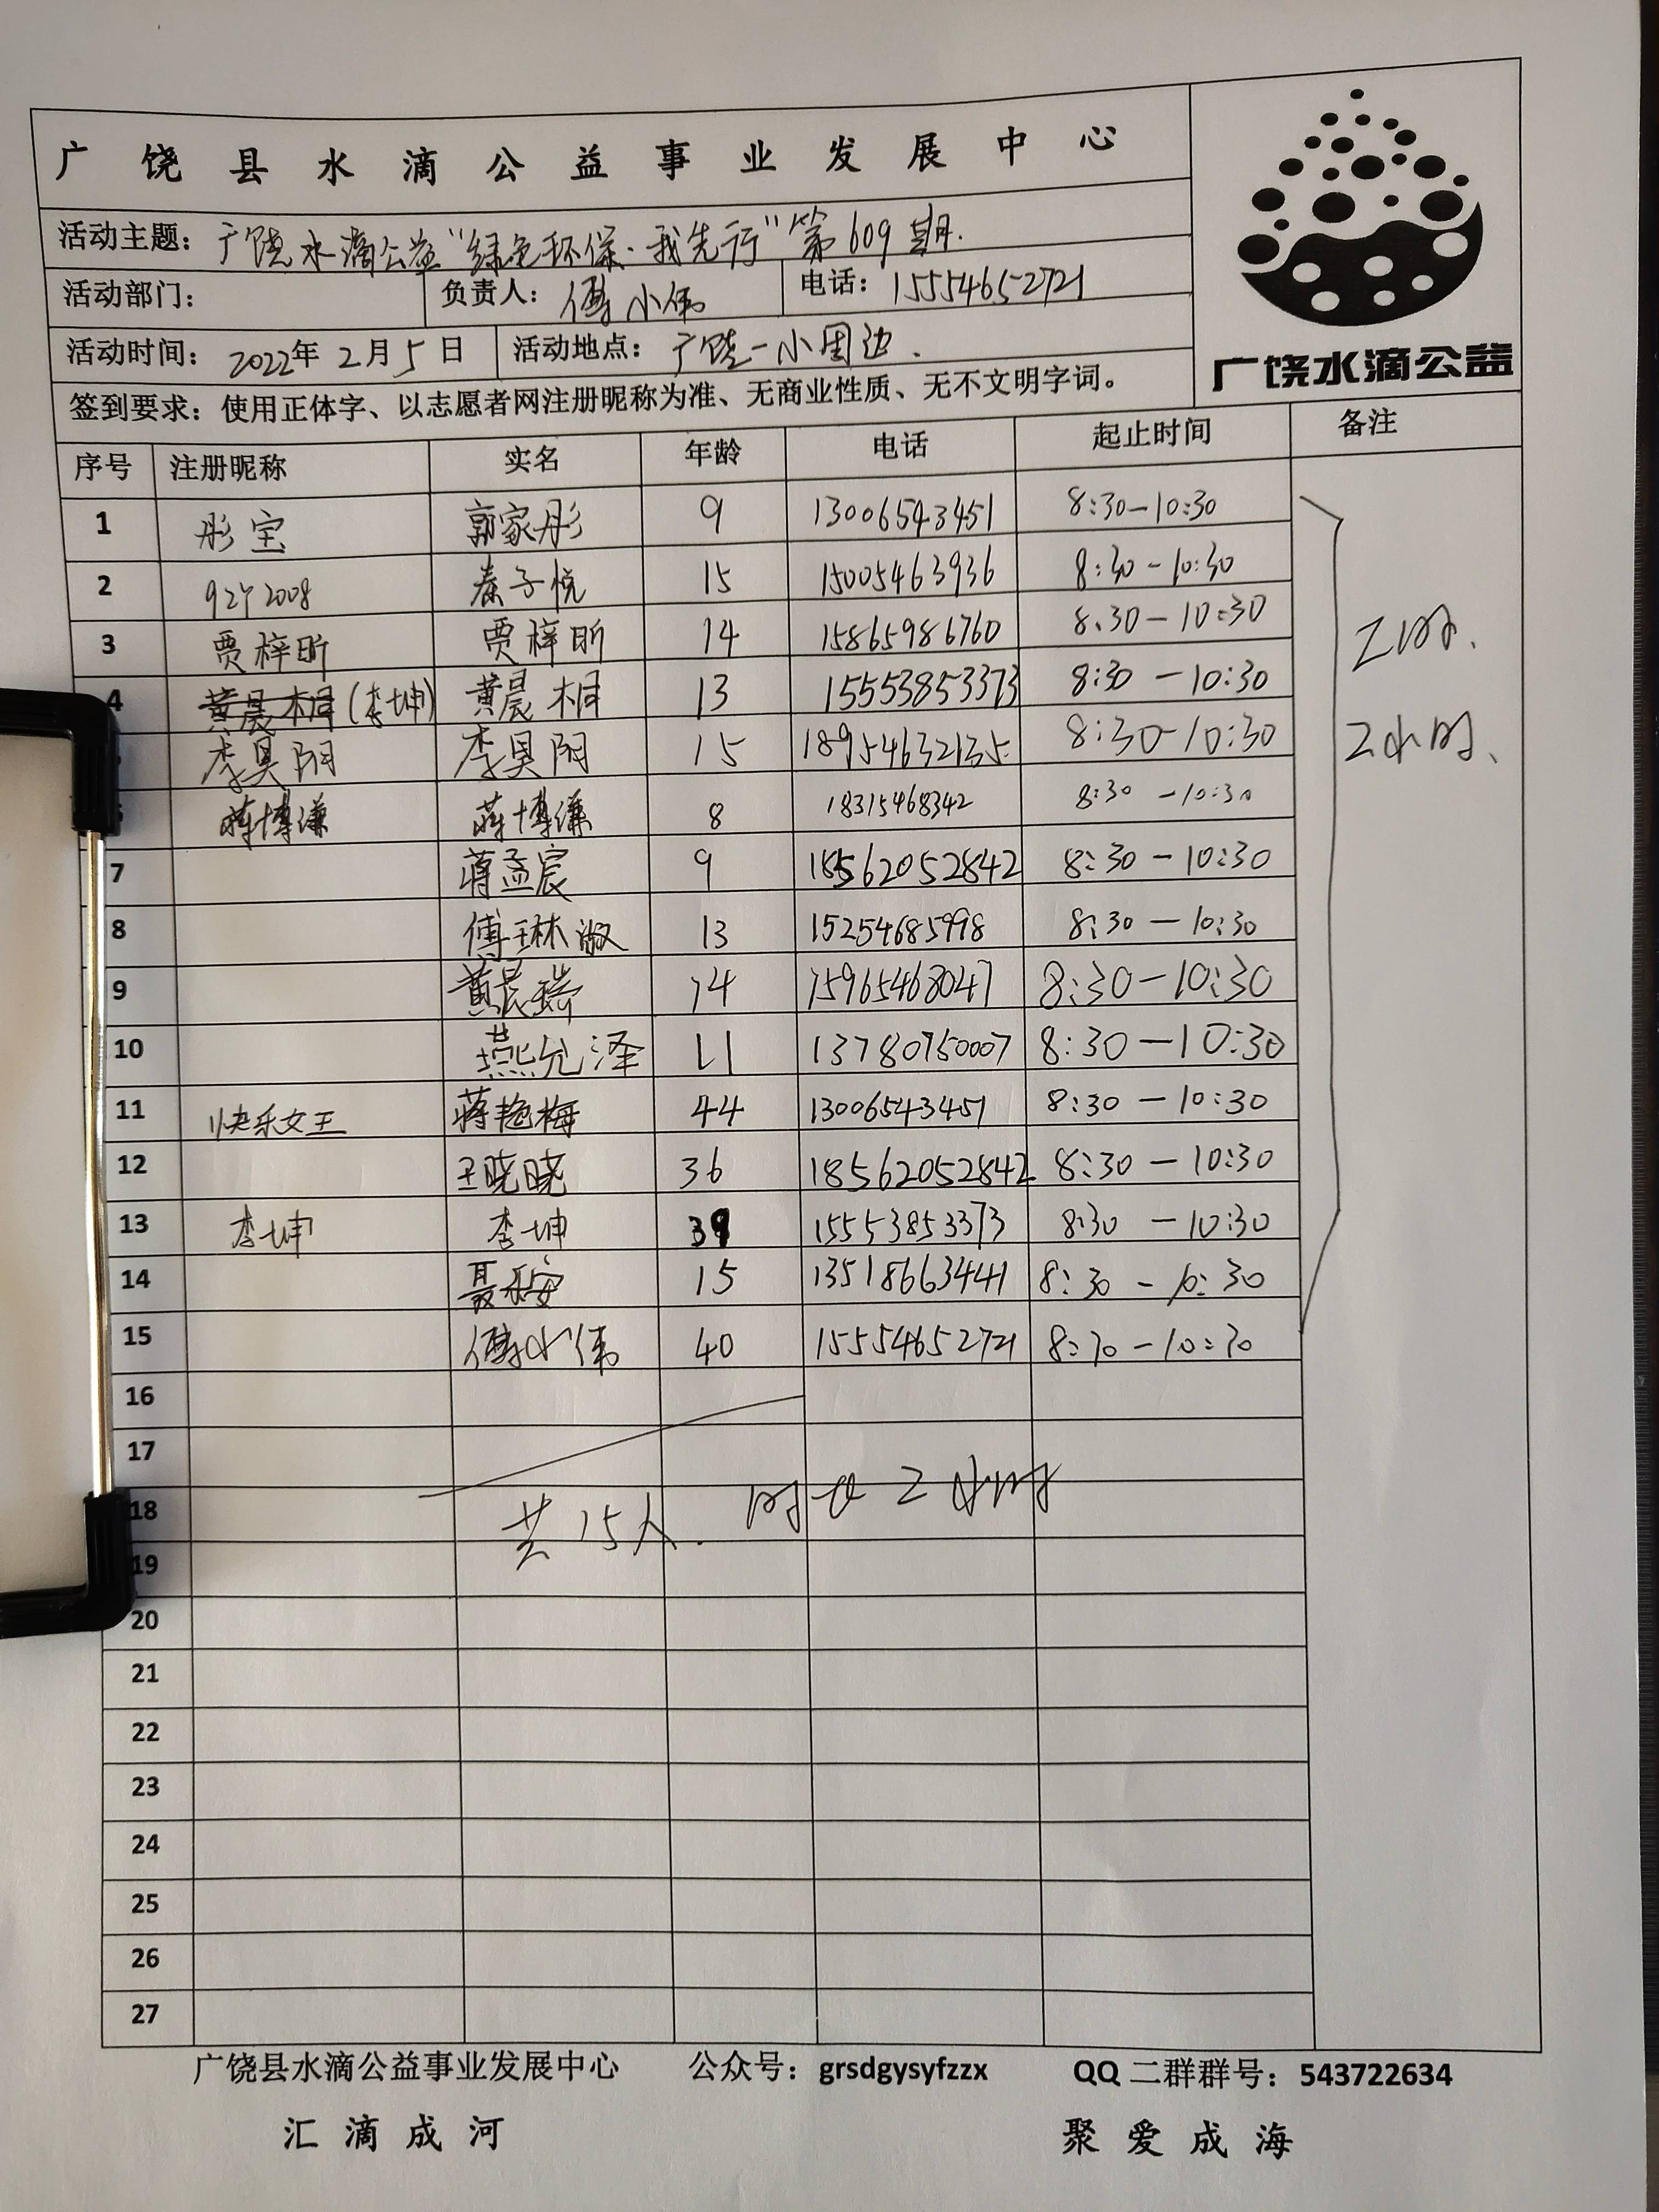 广饶县水滴公益事业发展中心
活动主题：广饶水滴公益“绿色环保·我先行”第609期.
活动部门： 负责人：傅小伟 电话：15554652721
活动时间：2022年2月5日 活动地点：广饶一小周边.
广饶水滴公益
签到要求：使用正体字、以志愿者网注册昵称为准、无商业性质、无不文明字词。
序号 注册昵称 实名 年龄 电话 起止时间 备注
1 彤宝 郭家彤 9 13006543451 8:30-10:30
2 秦子悦 15 15005463936 8:30-10:30
3 贾梓昕 贾梓昕 14 15865986760 8:30-10:30
4 黄晨相(李坤) 黄晨相 13 15553853373 8:30-10:30
李昊阳 李昊阳 15 18954632135 8:30-10:30
2小时、
蒋博谦 蒋博谦 8 18315468342 8:30-10:30
7 蒋孟宸 9 18562052842 8:30-10:30
8 傅琳淑 13 15254685998 8:30-10:30
9 黄晨瑞 14 15965468047 8:30-10:30
10 燕允泽 11 13780750007 8:30-10:30
11 快乐女王 蒋艳梅 44 13006543451 8:30-10:30
12 王晓晓 36 18562052842 8:30-10:30
13 李坤 李坤 39 15553853373 8:30-10:30
14 聂乐安 15 13518663441 8:30-10:30
15 傅小伟 40 15554652721 8:30-10:30
16
17
18 共15人. 时长2小时
19
20
21
22
23
24
25
26
27
广饶县水滴公益事业发展中心 公众号：grsdgysyfzzx QQ二群群号：543722634
汇滴成河 聚爱成海